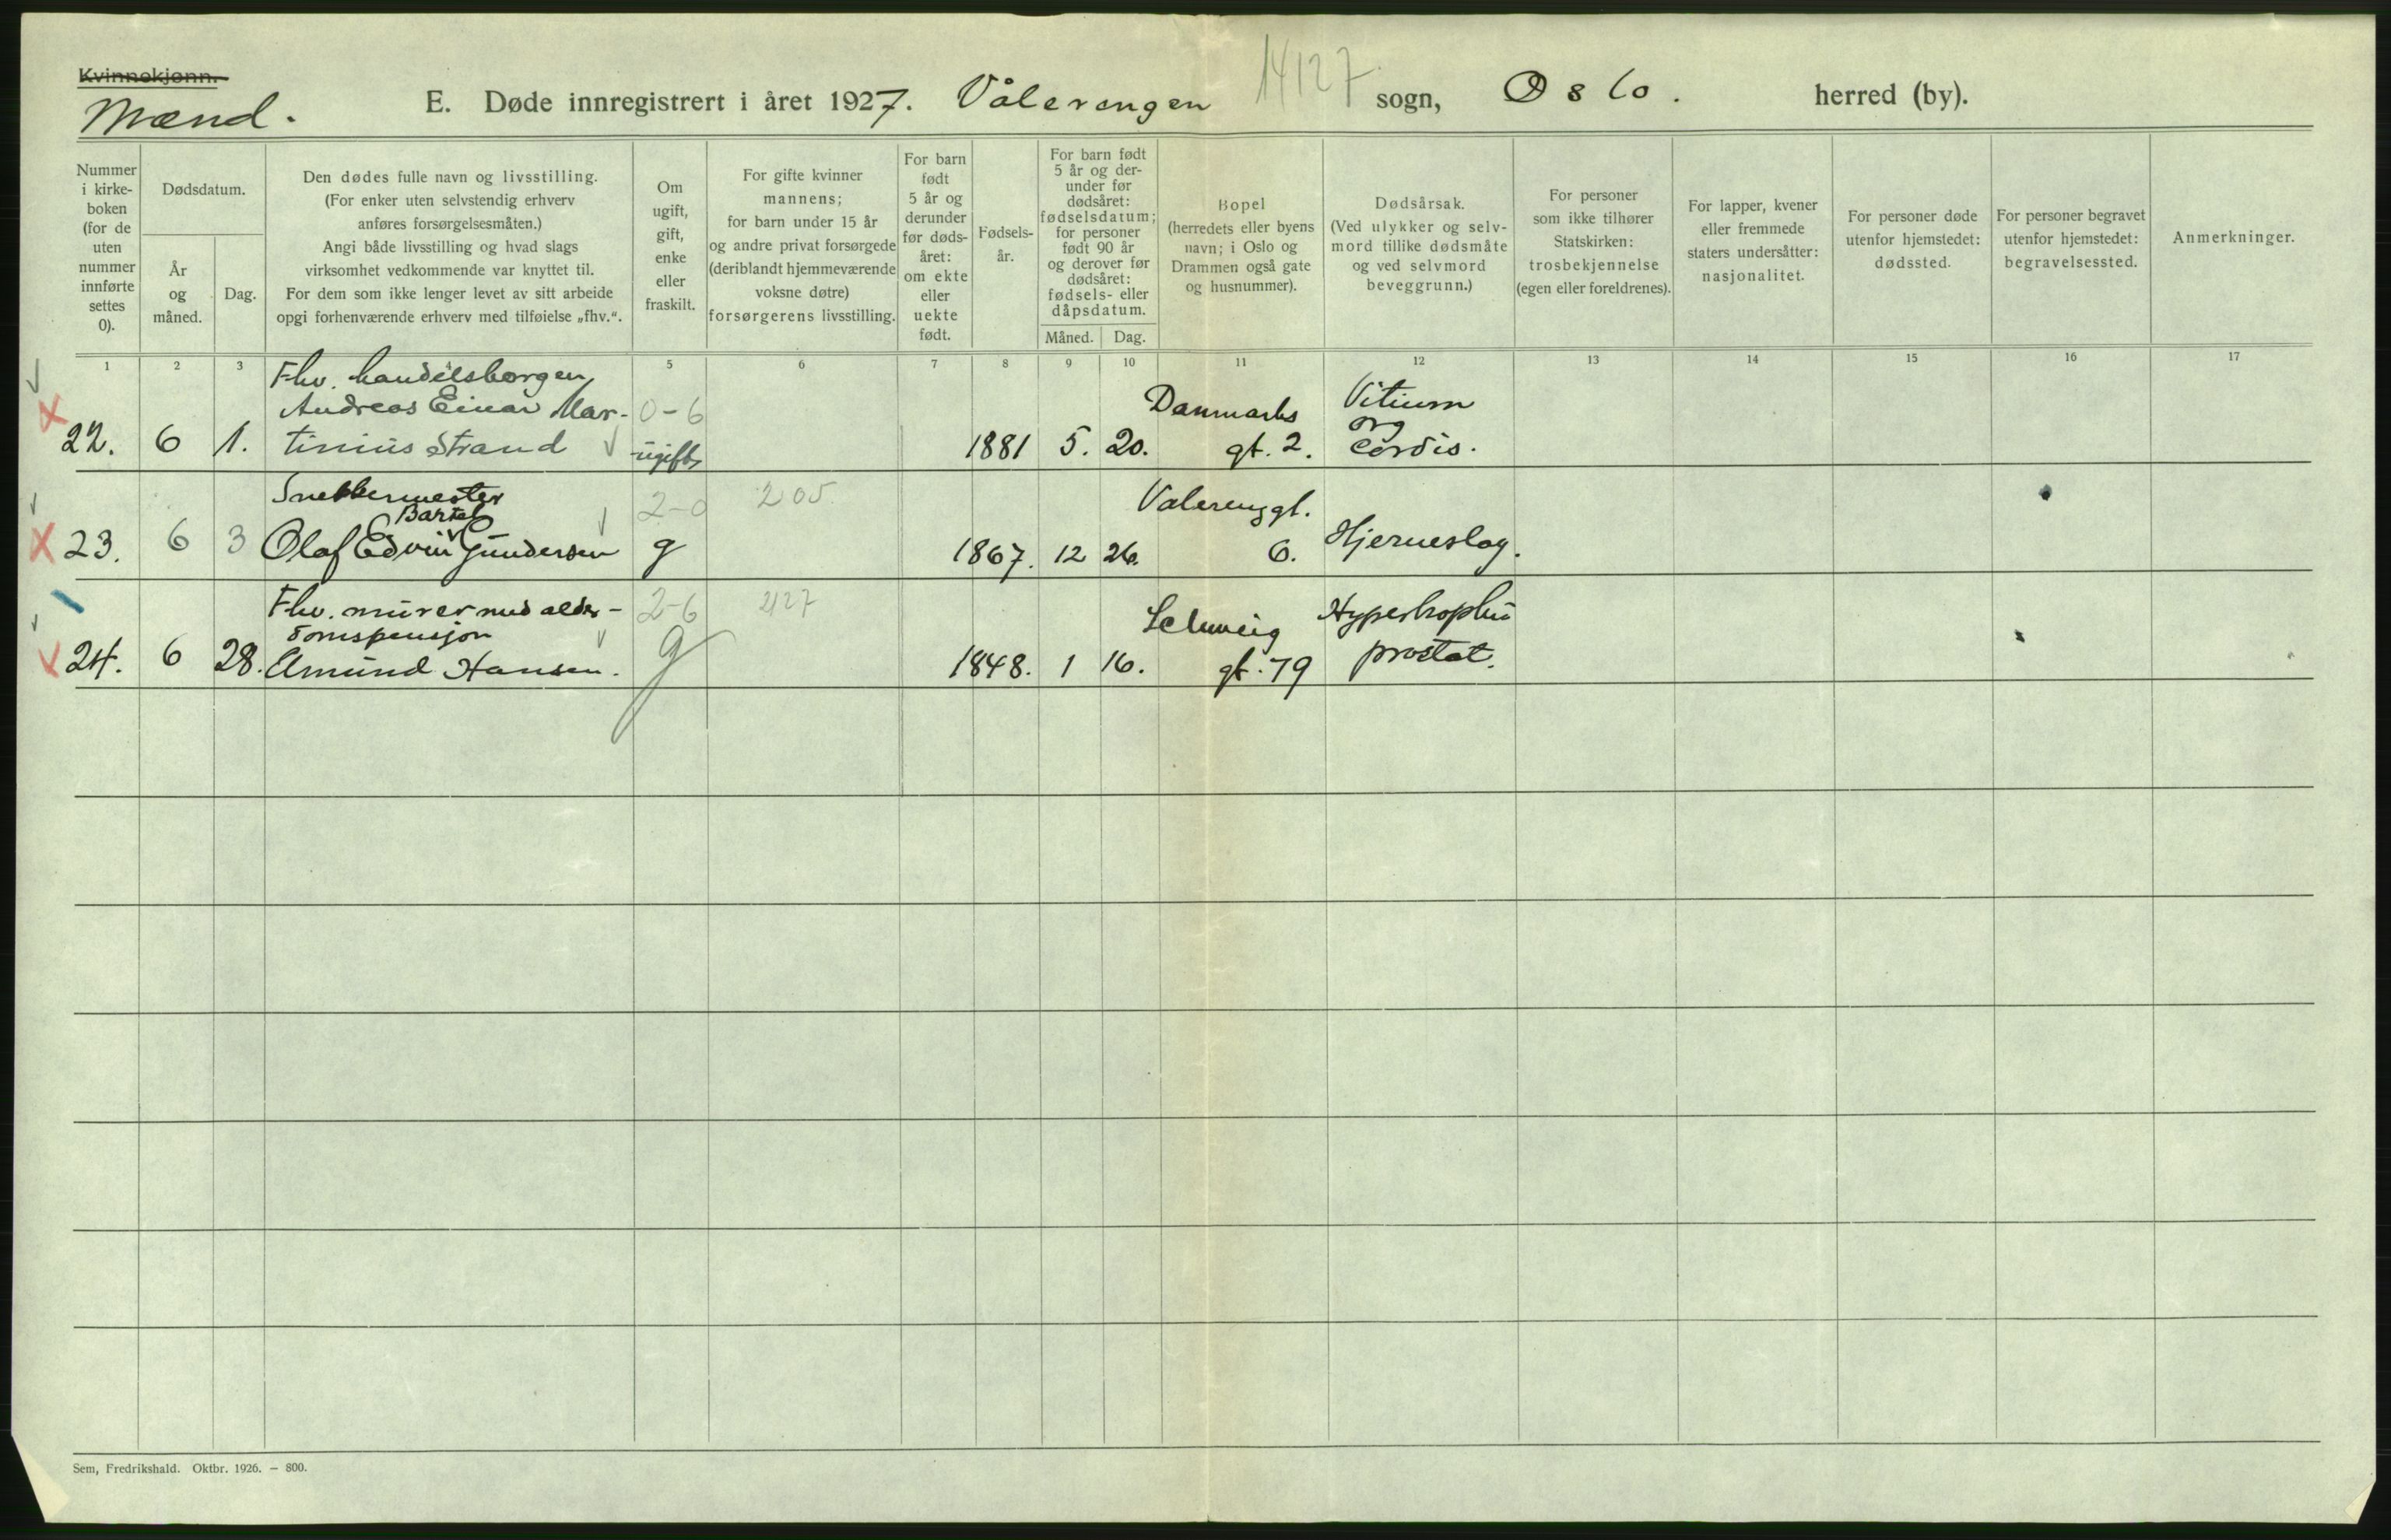 Kvinnekjønn.
Mænd.
E. Døde innregistrert i året 1927. Vålerengen sogn, Oslo. herred (by).
14127
Nummer i kirke-boken (for de uten nummer innførte settes 0).
Dødsdatum.
År og måned.
Dag.
Den dødes fulle navn og livsstilling.
(For enker uten selvstendig erhverv
anføres forsørgelsesmåten.)
Angi både livsstilling og hvad slags
virksomhet vedkommende var knyttet til.
For dem som ikke lenger levet av sitt arbeide
opgi forhenværende erhverv med tilføielse „fhv.“.
Om ugift, gift, enke eller fraskilt.
For gifte kvinner
mannens;
for barn under 15 år
og andre privat forsørgede
(deriblandt hjemmeværende
voksne døtre)
forsørgerens livsstilling.
For barn født 5 år og derunder før døds-året: om ekte eller uekte født.
Fødsels-år.
For barn født
5 år og der-
under før
dødsåret:
fødselsdatum;
for personer
født 90 år
og derover før
dødsåret:
fødsels- eller
dåpsdatum.
Måned. Dag.
Bopel
(herredets eller byens
navn; i Oslo og
Drammen også gate
og husnummer).
Dødsårsak.
(Ved ulykker og selv-
mord tillike dødsmåte
og ved selvmord
beveggrunn.)
For personer
som ikke tilhører
Statskirken:
trosbekjennelse
(egen eller foreldrenes).
For lapper, kvener
eller fremmede
staters undersåtter:
nasjonalitet.
For personer døde
utenfor hjemstedet:
dødssted.
For personer begravet
utenfor hjemstedet:
begravelsessted.
Anmerkninger.
1 2 3 5 6 7 8 9 10 11 12 13 14 15 16 17
Fhv. handelsborger
Andreas Einar Mar- 0-6 Danmarks Vitium
org
22. 6 1. tinius Strand ugift 1881 5. 20. gt. 2. cordis.
Snekkermester 2-0 205. Valerenggt.
Bartel
23. 6 3 Olaf Edvin Gundersen g 1867. 12 26. 6. Hjerneslag.
Fhv. murer med alder- 2-6 2127 Schweig Hypertrophia
domspensjon
24. 6 28. Amund Hansen. g 1848. 1 16. gt. 79 prostat.
Sem, Fredrikshald. Oktbr. 1926. — 800.